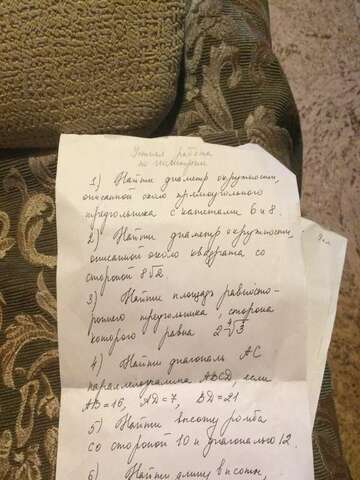 Устная работа
по геометрии
1) Найти диаметр окружности,
описанной около прямоугольного
треугольника с катетами 6 и 8.
2) Найти диаметр окружности,
описанной около квадрата со
стороной 8√2
3) Найти площадь равносто-
роннего треугольника, сторона
которого равна 2∜3
4) Найти диагональ AC
параллелограмма ABCD, если
AB=16, AD=7, BD=21
5) Найти высоту ромба
со стороной 10 и диагональю 12.
6) Найти длину высоты,